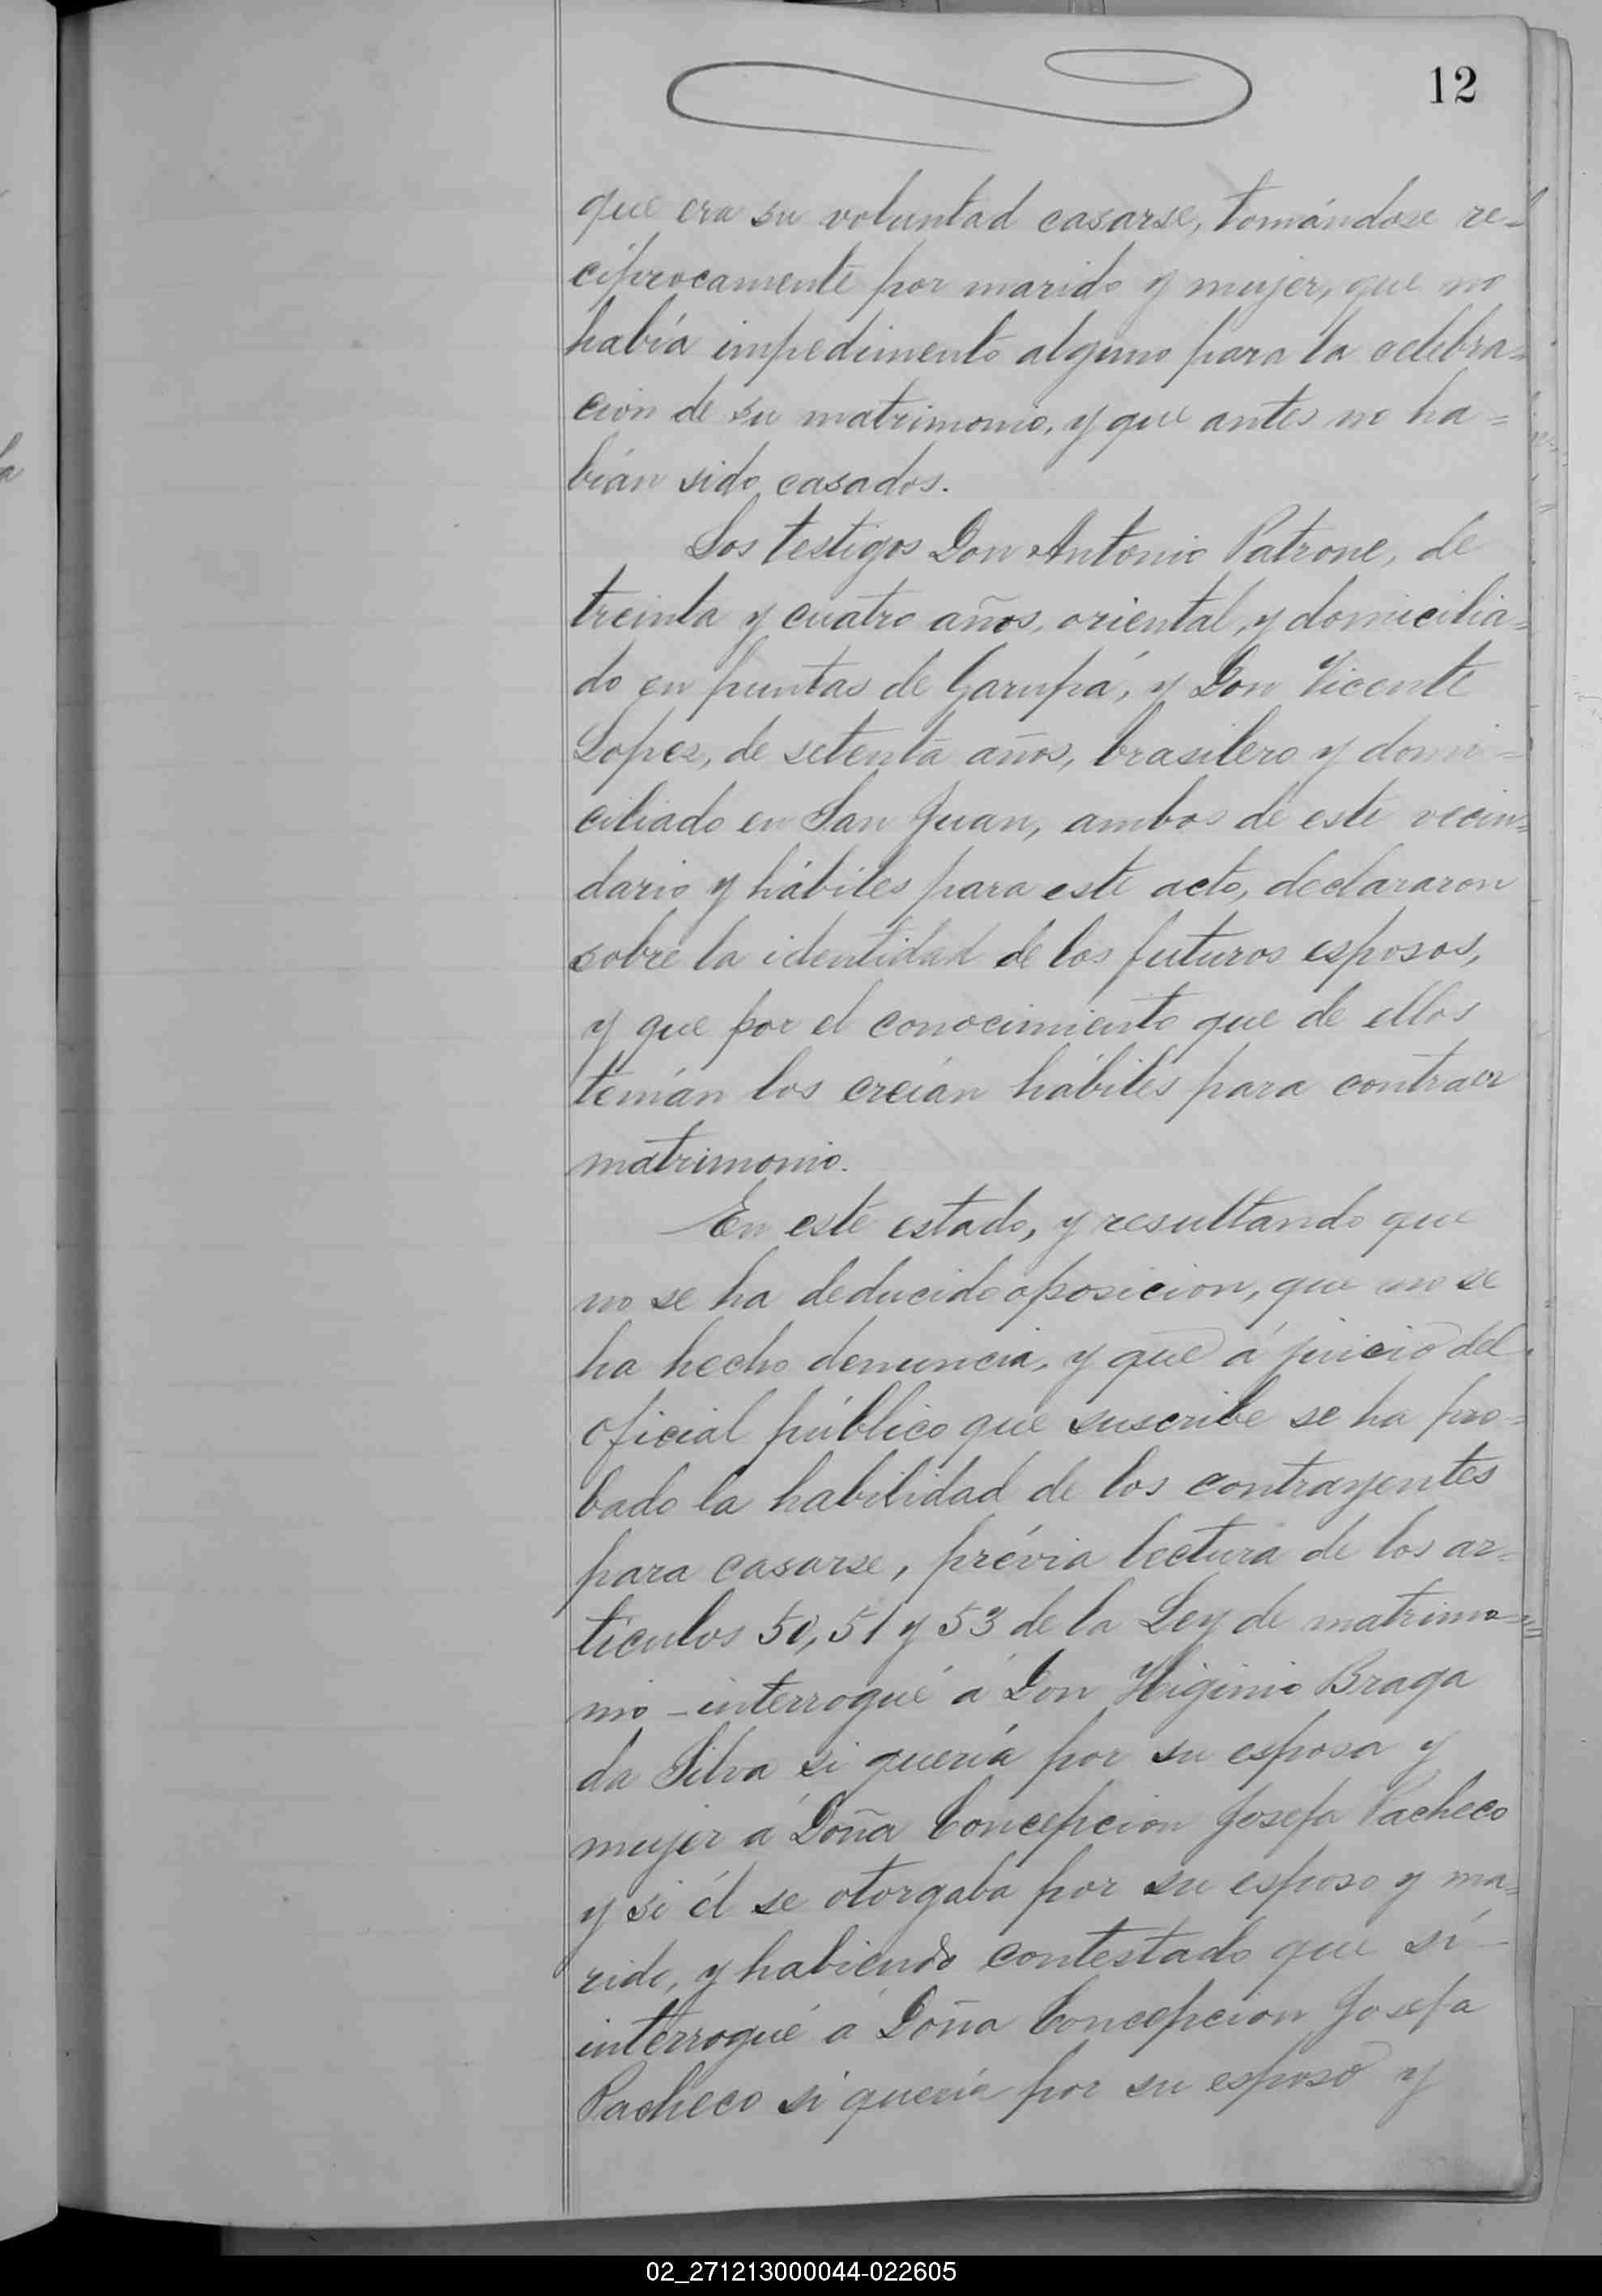 12
que era su voluntad casarse, tomándose re-
cíprocamente por marido y mujer, que no
había impedimento alguno para la celebra=
cion de su matrimonio, y que antes no ha=
bían sido casados.
Los testigos Don Antonio Patrone, de
treinta y cuatro años, oriental, y domicilia=
do en puntas de Garupá, y Don Vicente
Lopez, de setenta años, brasilero y domi=
ciliado en San Juan, ambos de este vecin=
dario y hábiles para este acto, declararon
sobre la identidad de los futuros esposos,
y que por el conocimiento que de ellos
tenían los creían hábiles para contraer
matrimonio.
En este estado, y resultando que
no se ha deducido oposicion, que no se
ha hecho denuncia, y que á juicio del
oficial público que suscribe se ha pro=
bado la habilidad de los contrayentes
para casarse, prévia lectura de los ar=
tículos 50, 51 y 53 de la Ley de matrimo=
nio - interrogué á Don Higinio Braga
da Silva si quería por su esposa y
mujer á Doña Concepcion Josefa Pacheco
y si él se otorgaba por su esposo y ma=
rido, y habiendo contestado que sí -
interrogué á Doña Concepcion Josefa
Pacheco si quería por su esposo y
02_271213000044-022605